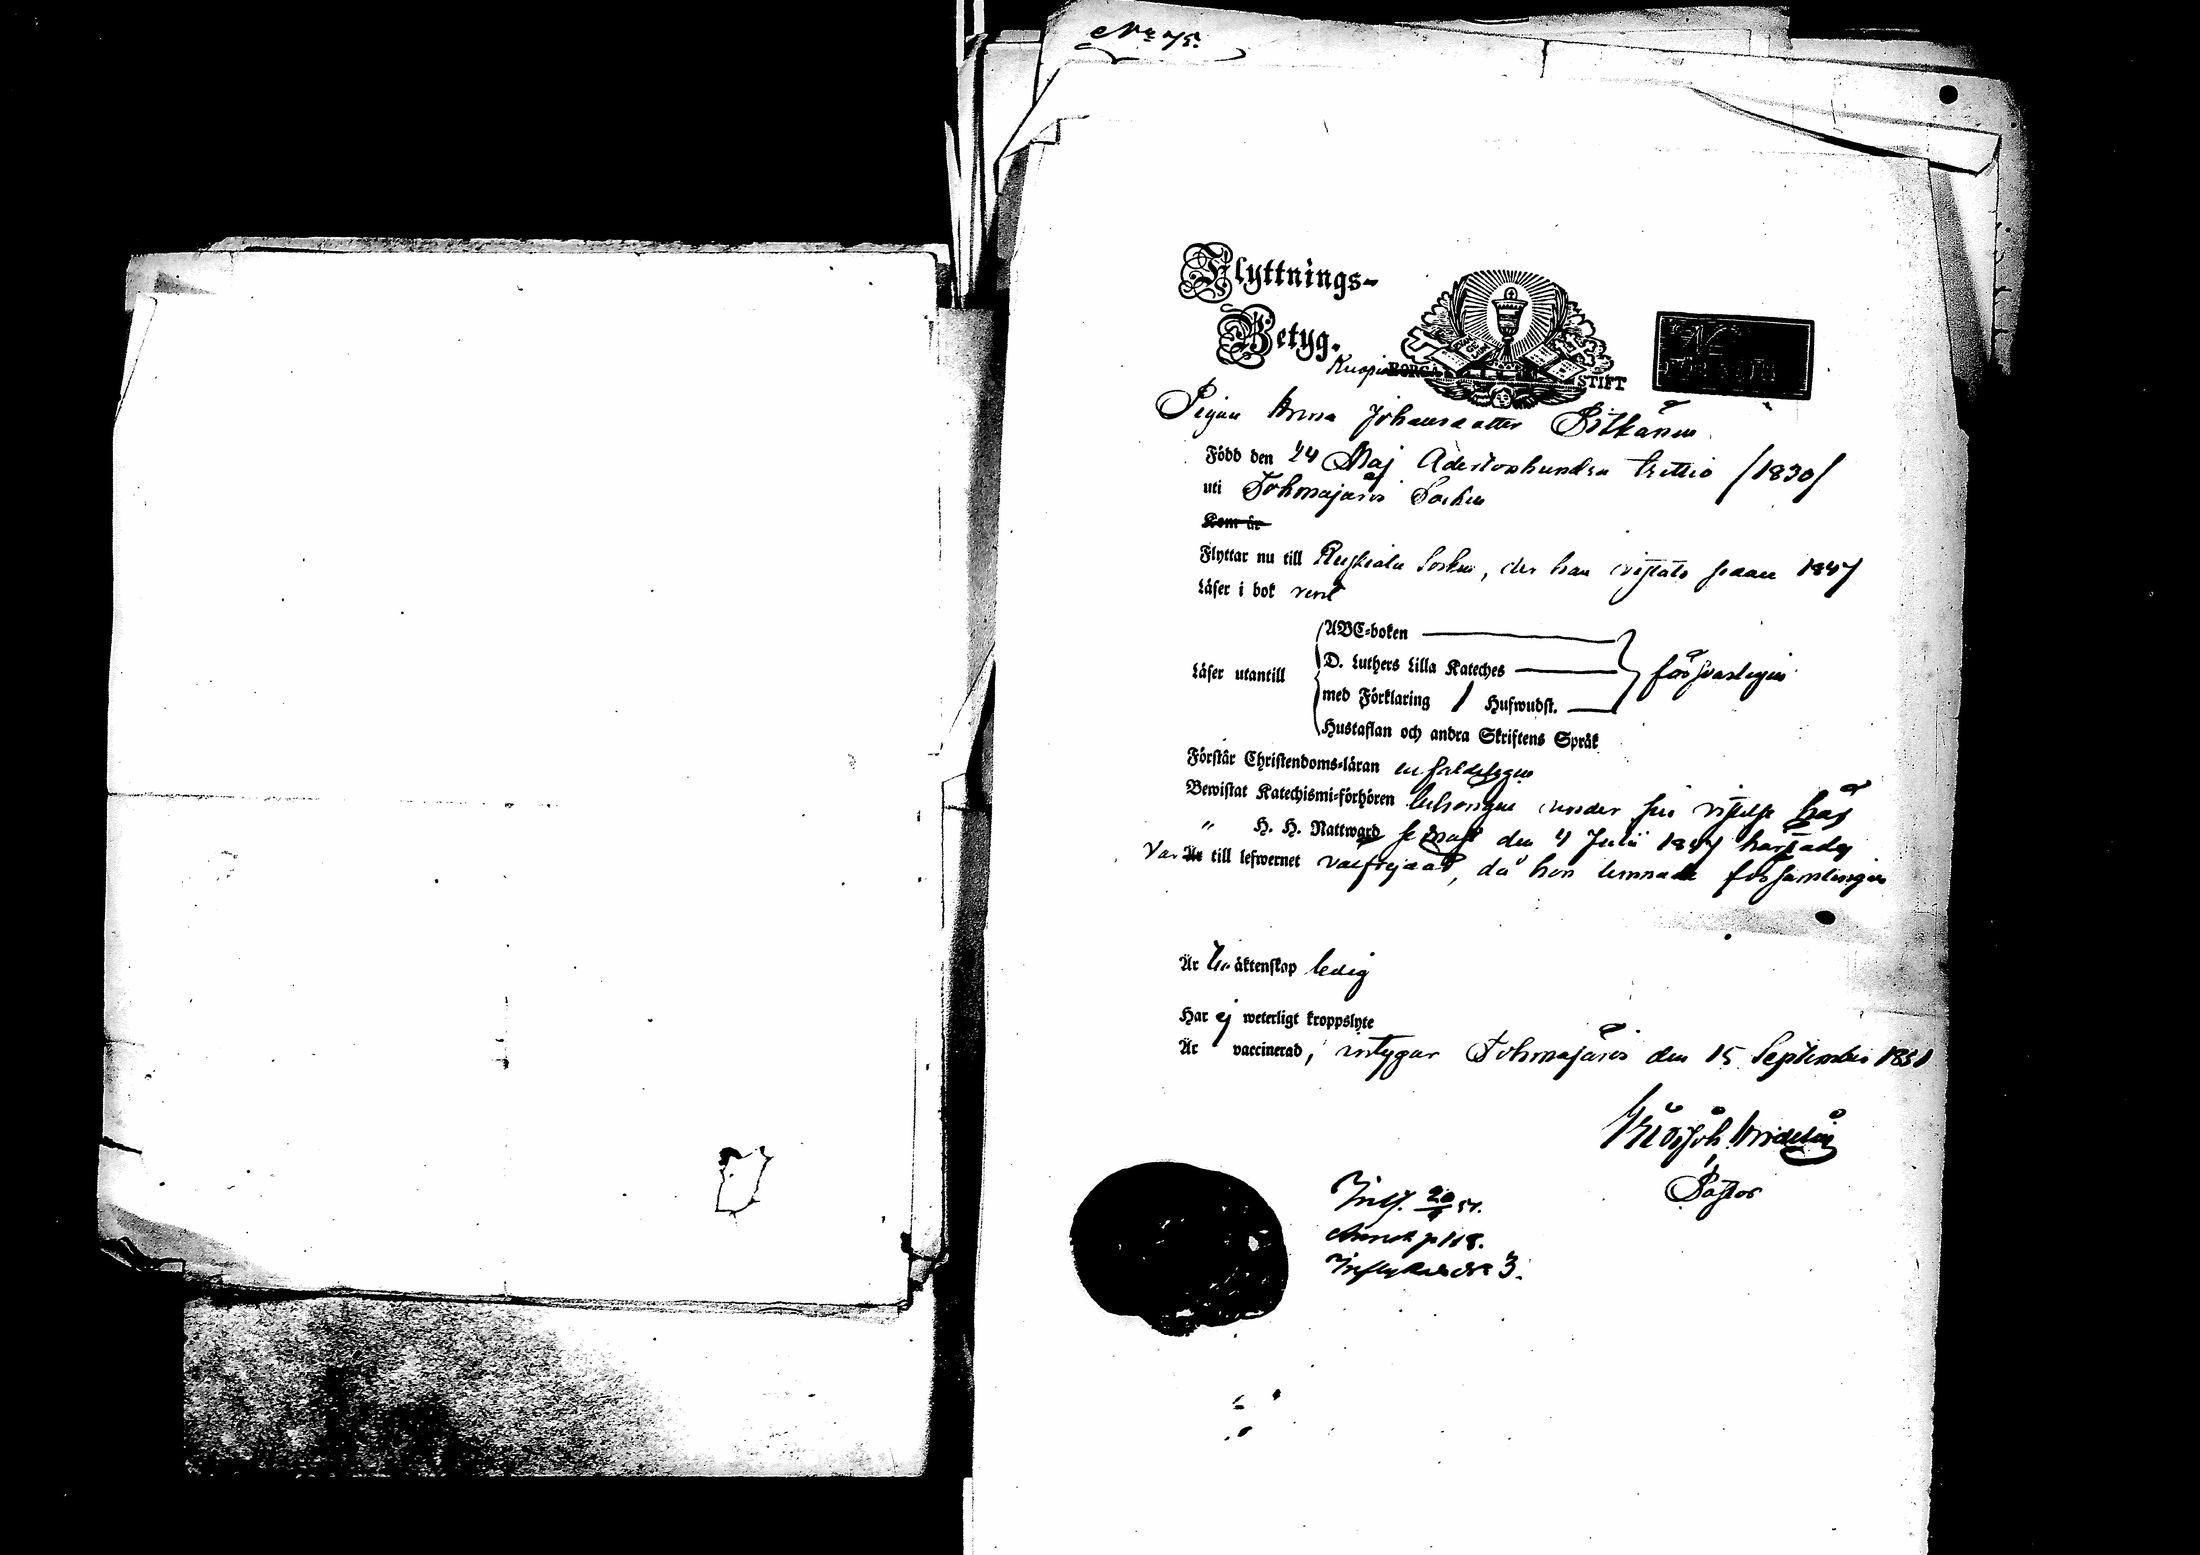 No 75.
Flyttnings-
Betyg.
Kuopio BORGÅ STIFT
Pigan Anna Johansdotter Pitkänen
Född den 24 Maj Adertonhundra trettio /1830/
uti Tohmajärvi Socken
Kom år
Flyttar nu till Ruskiala Socken, der hon vistats sedan 1847
Läser i bok rent
ABC-boken
D. Luthers Lilla Kateches
Läser utantill försvarligen
med Förklaring / Hufwudst.
Hustaflan och andra Skriftens Språk
Förstår Christendoms-läran enfaldeligen
Bewistat Katechismi-förhören behörigen under sin vistelse här
" H. H. Nattward senast den 4 Julii 1847 härstädes
Var Är till lefwernet välfrejdad, då hon lemnade församlingen
Är till äktenskap ledig
Har ej weterligt kroppslyte
Är vaccinerad, intygar Tohmajärvi den 15 September 1851
Pastor
p 118.
3.